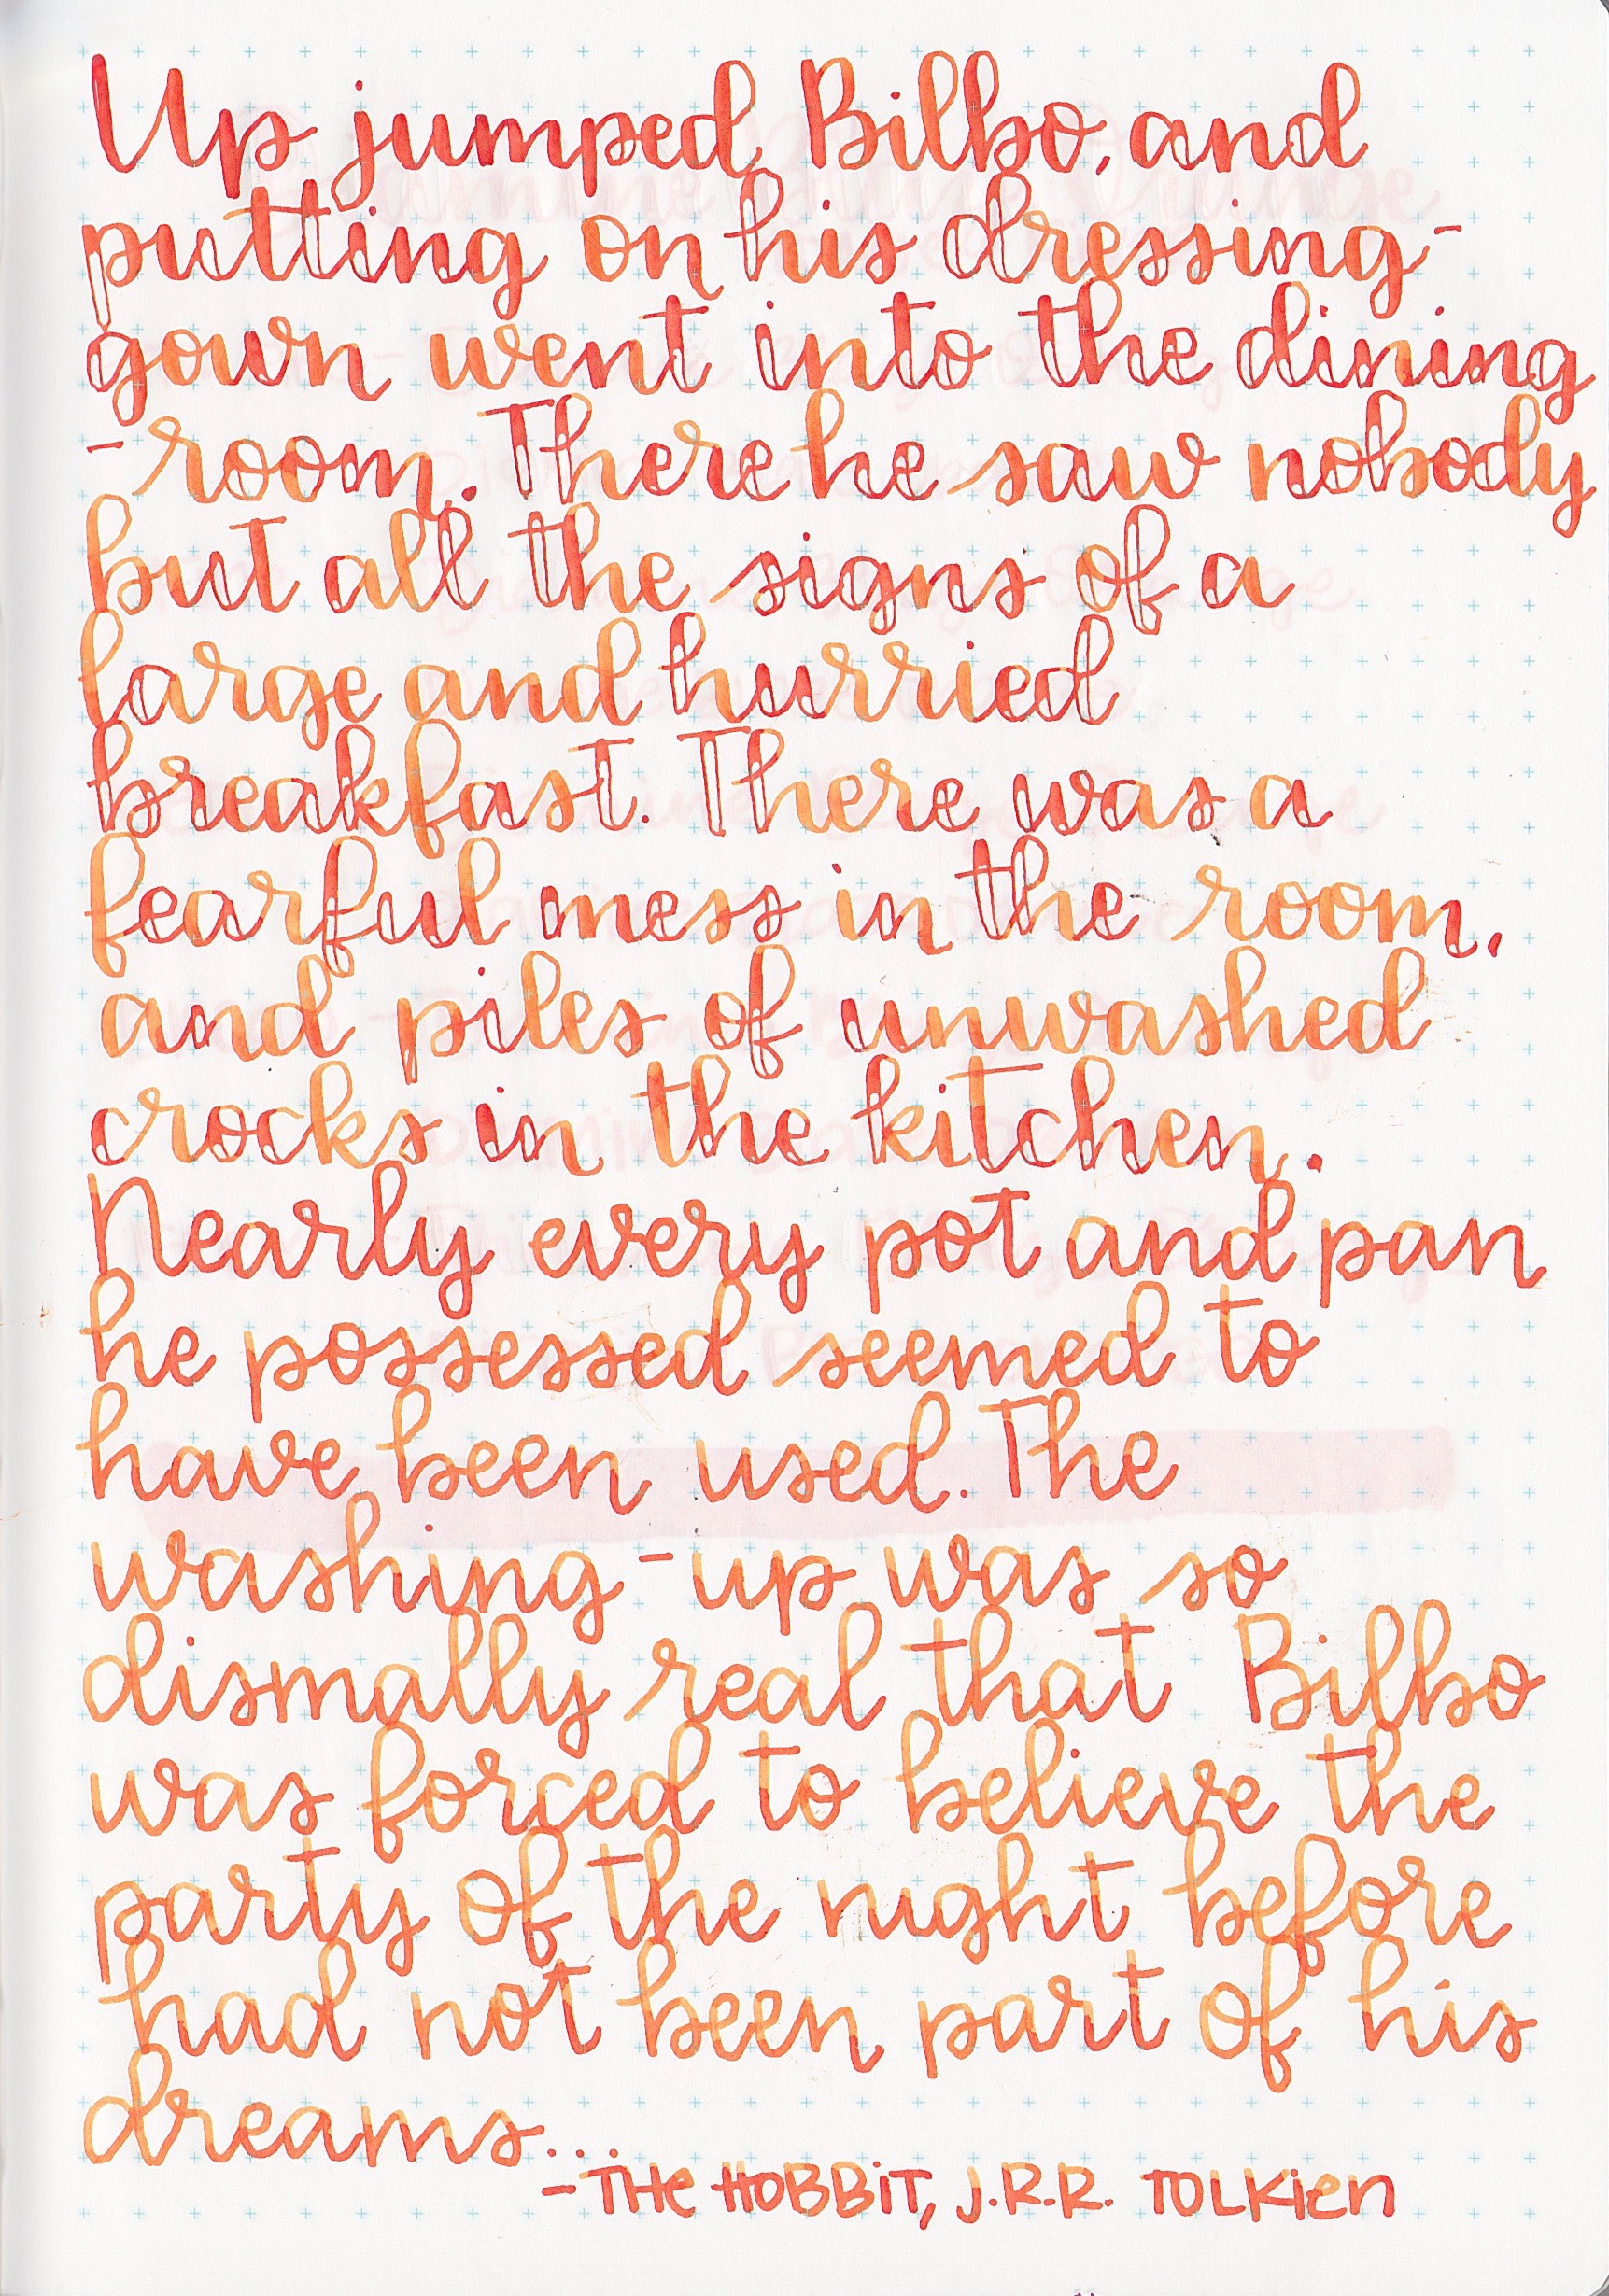 Up jumped Bilbo, and
putting on his dressing-
gown went into the dining
-room. There he saw nobody
but all the signs of a
large and hurried
breakfast. There was a
fearful mess in the room,
and piles of unwashed
crocks in the kitchen.
Nearly every pot and pan
he possessed seemed to
have been used. The
washing-up was so
dismally real that Bilbo
was forced to believe the
party of the night before
had not been part of his
dreams...
-THE HOBBiT, J.R.R. TOLKien